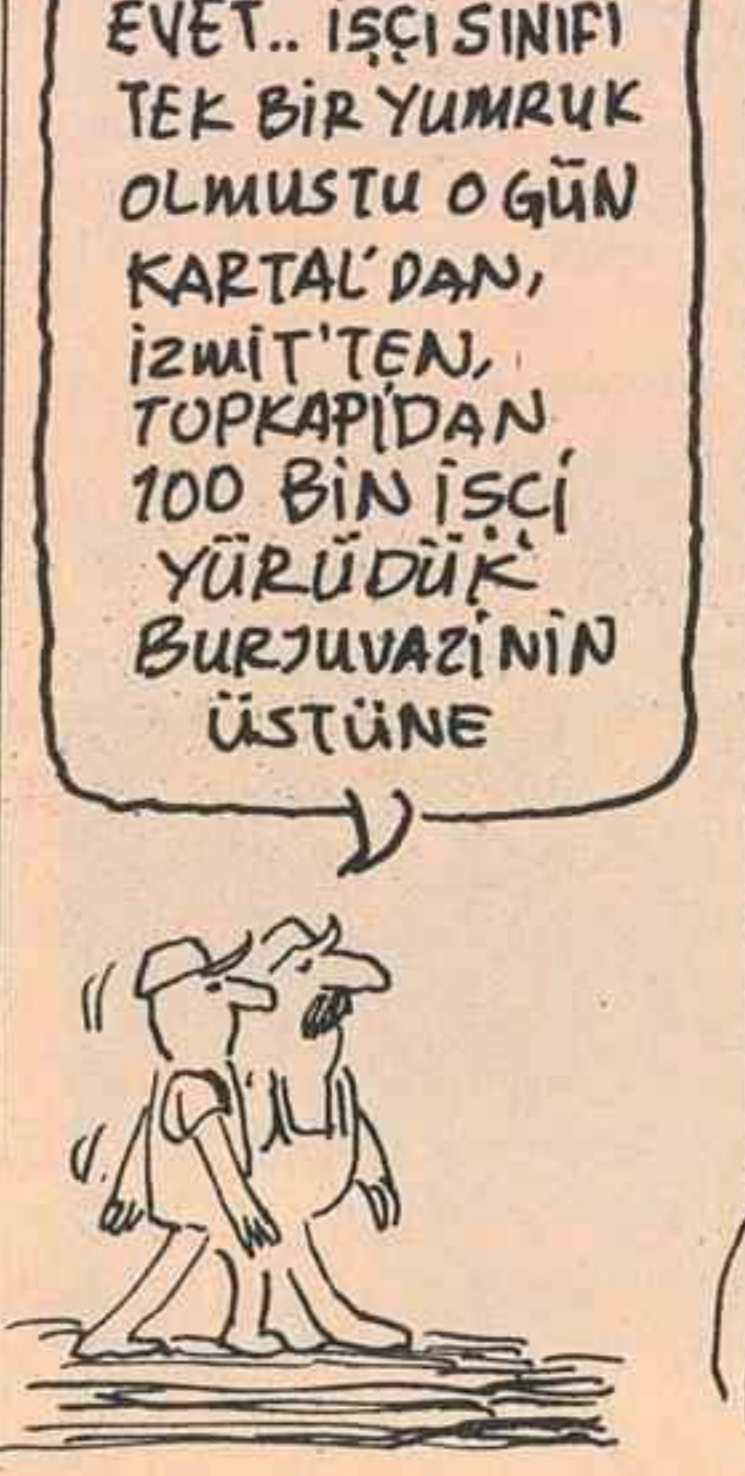 EVET.. İŞÇİ SINIFI
TEK BİR YUMRUK
OLMUSTU O GÜN
KARTAL'DAN,
İZMİT'TEN,
TOPKAPI'DAN
100 BİN İŞÇİ
YÜRÜDÜK
BURJUVAZİNİN
ÜSTÜNE